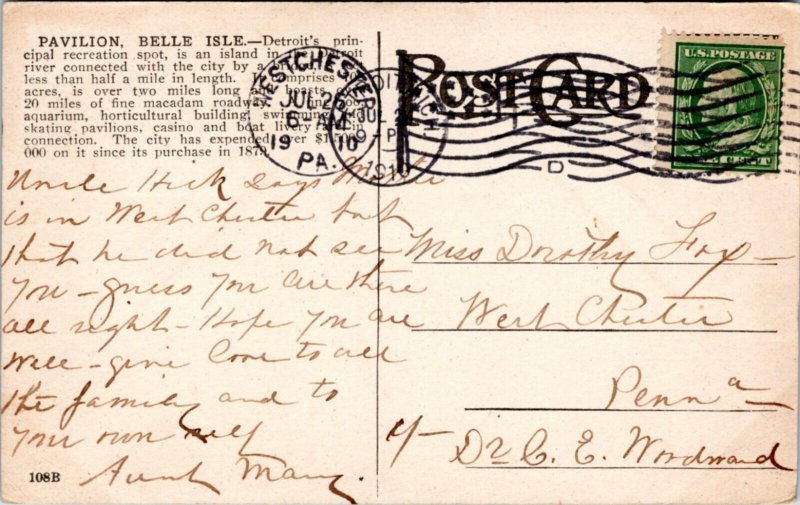 PAVILION, BELLE ISLE.—Detroit's prin-
cipal recreation spot, is an island in Detroit
river connected with the city by a
less than half a mile in length. comprises
acres, is over two miles long and boasts
20 miles of fine macadam roadway,
aquarium, horticultural building, swimming
skating pavilions, casino and boat livery in
connection. The city has expended over $1,
000 on it since its purchase in 1879.
POST CARD
U.S. POSTAGE
WEST CHESTER
JUL 26
6- AM
19 10
PA.
MICH
1910
D
Uncle Dick Says Walter
is in West Chester but
that he did not see
you - guess you are there
all right - Hope you are
well - give love to all
the family and to
your own self
Aunt Mary.
Miss Dorothy Fox -
West Chester
Penna -
Dr C. E. Woodward
108B